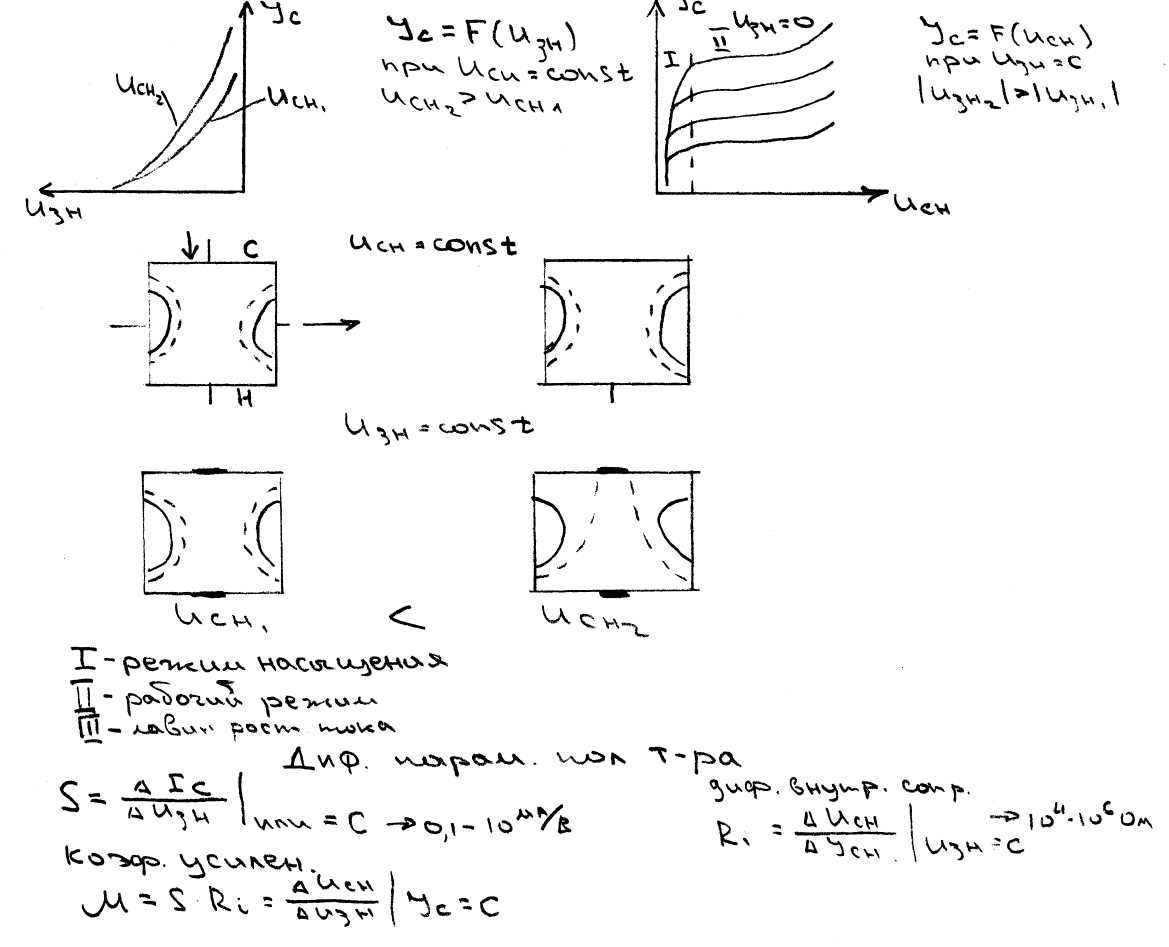 Jс
Uсн₂
Uсн₁
Uзн
Jс = F(Uзн)
при Uси = const
Uсн₂ > Uсн₁
Jс
I
II
Uзн = 0
Uсн
Jс = F(Uсн)
при Uзн = c
|Uзн₂| > |Uзн₁|
С
Uсн = const
Н
Uзн = const
Uсн₁ < Uсн₂
I - режим насыщения
II - рабочий режим
III - лавин рост тока
Диф. парам. пол т-ра
S = ΔIс / ΔUзн | = C → 0,1 - 10 мА/В
диф. внутр. сопр.
Ri = ΔUсн / ΔJсн | Uзн = C → 10⁴-10⁶ Ом
коэф. усилен.
M = S · Ri = ΔUсн / ΔUзн | Jс = C